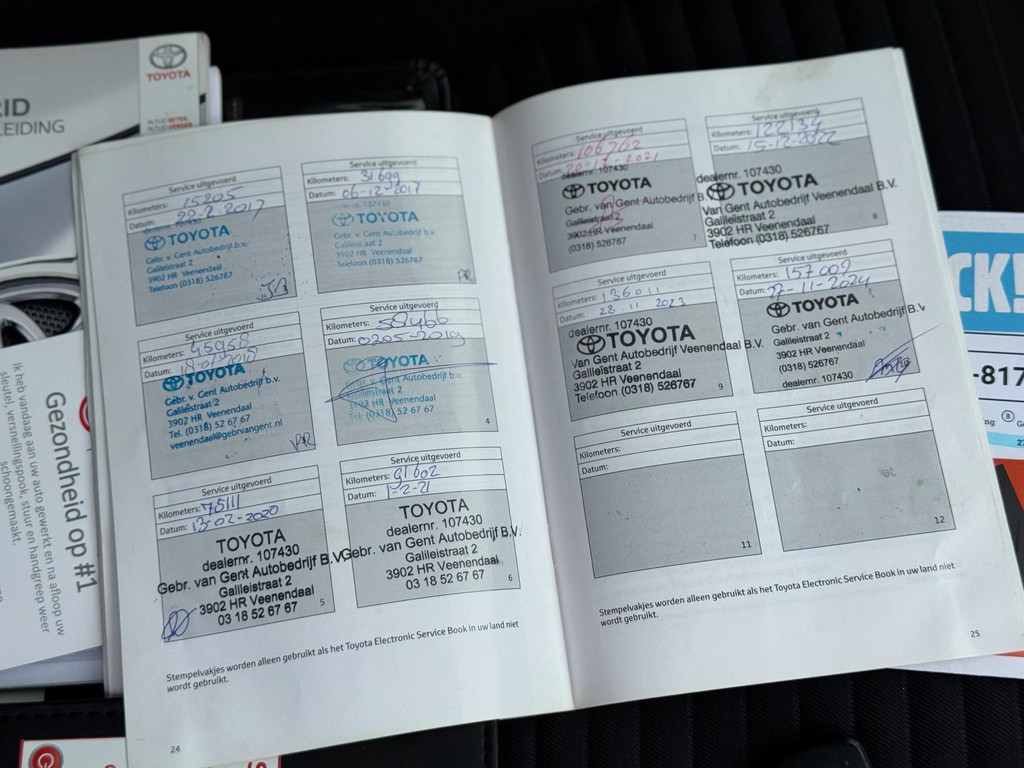 TOYOTA
RID
LEIDING
ALTIJD BETER,
Gezondheid op #1
Ik heb vandaag aan uw auto gewerkt en na afloop uw
sleutel, versnellingspook, stuur en handgreep weer
schoongemaakt.
Service uitgevoerd
Kilometers: 15205
Datum: 22-2-2017
TOYOTA
Gebr. v. Gent Autobedrijf b.v.
Galileistraat 2
3902 HR Veenendaal
Telefoon (0318) 526767
Service uitgevoerd
Kilometers: 31699
Datum: 06-12-2017
TOYOTA
Gebr. v. Gent Autobedrijf b.v.
Galileistraat 2
3902 HR Veenendaal
Telefoon (0318) 526767
Service uitgevoerd
Kilometers: 45958
Datum:
TOYOTA
Gebr. v. Gent Autobedrijf b.v.
Galileistraat 2
3902 HR Veenendaal
Tel. (0318) 52 67 67
veenendaal@gebrvangent.nl
Service uitgevoerd
Kilometers: 58466
Datum: 0205-2019
TOYOTA
Gebr. v. Gent Autobedrijf b.v.
Galileistraat 2
3902 HR Veenendaal
Tel. (0318) 52 67 67
4
Service uitgevoerd
Kilometers: 75111
Datum: 13-02-2020
TOYOTA
dealernr. 107430
Gebr. van Gent Autobedrijf B.V.
Galileistraat 2
3902 HR Veenendaal
03 18 52 67 67
5
Service uitgevoerd
Kilometers: 91602
Datum: 1-2-21
TOYOTA
dealernr. 107430
Gebr. van Gent Autobedrijf B.V.
Galileistraat 2
3902 HR Veenendaal
03 18 52 67 67
6
Stempelvakjes worden alleen gebruikt als het Toyota Electronic Service Book in uw land niet
wordt gebruikt.
24
Service uitgevoerd
Kilometers: 106762
Datum:
dealernr. 107430
TOYOTA
Gebr. van Gent Autobedrijf B.V.
Galileistraat 2
3902 HR Veenendaal
(0318) 526767
7
Service uitgevoerd
Kilometers: 122134
Datum: 15-12-2022
dealernr. 107430
TOYOTA
Van Gent Autobedrijf Veenendaal B.V.
Galileistraat 2
3902 HR Veenendaal
Telefoon (0318) 526767
8
Service uitgevoerd
Kilometers: 136011
Datum: 28.11.2023
dealernr. 107430
TOYOTA
Van Gent Autobedrijf Veenendaal B.V.
Galileistraat 2
3902 HR Veenendaal
Telefoon (0318) 526767
9
Service uitgevoerd
Kilometers: 157009
Datum: 27-11-2024
TOYOTA
Gebr. van Gent Autobedrijf B.V
Galileistraat 2
3902 HR Veenendaal
(0318) 526767
dealernr. 107430
Service uitgevoerd
Kilometers:
Datum:
11
Service uitgevoerd
Kilometers:
Datum:
12
Stempelvakjes worden alleen gebruikt als het Toyota Electronic Service Book in uw land niet
wordt gebruikt.
25
CK!
-817
8